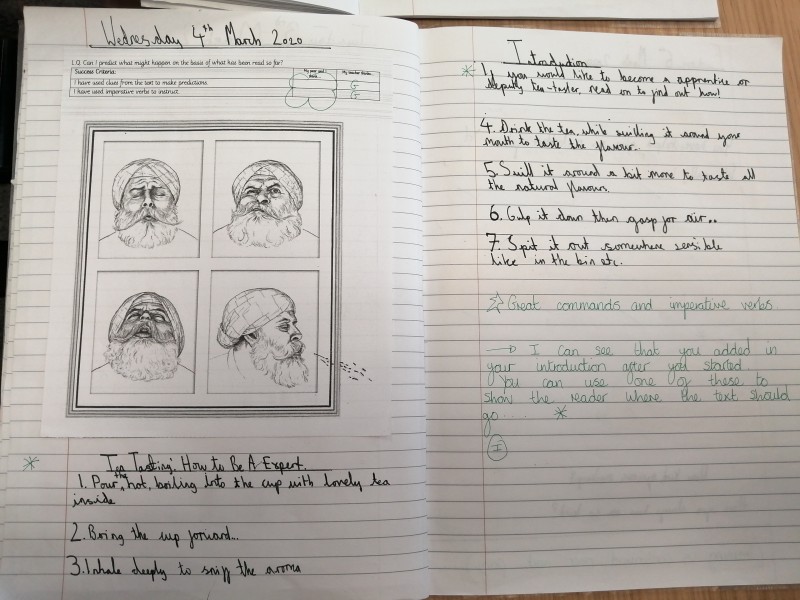 Wednesday 4th March 2020
L.O. Can I predict what might happen on the basis of what has been read so far?
Success Criteria:
I have used clues from the text to make predictions.
G
I have used imperative verbs to instruct.
G
* Tea Tasting: How to Be A Expert.
1. Pour the hot, boiling into the cup with lovely tea
inside
2. Bring the cup forward...
3. Inhale deeply to sniff the aroma
Introduction
* If you would like to become a apprentice or
deputy tea-taster, read on to find out how!
4. Drink the tea, while swilling it around your
mouth to taste the flavour..
5. Swill it around a bit more to taste all
the natural flavours.
6. Gulp it down then gasp for air..
7. Spit it out somewhere sensible
like in the bin etc.
☆ Great commands and imperative verbs
→ I can see that you added in
your introduction after you started.
You can use one of these to
show the reader where the text should
go.... *
I